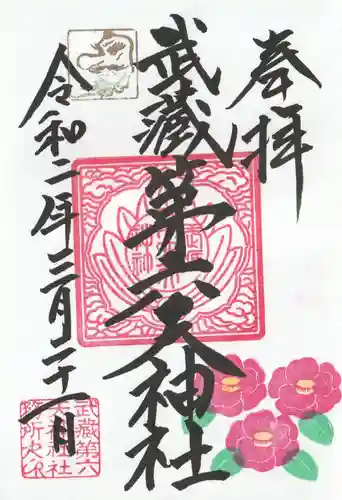 奉拝
武蔵第六天神社
令和二年三月二十一日
武蔵第六
天神社